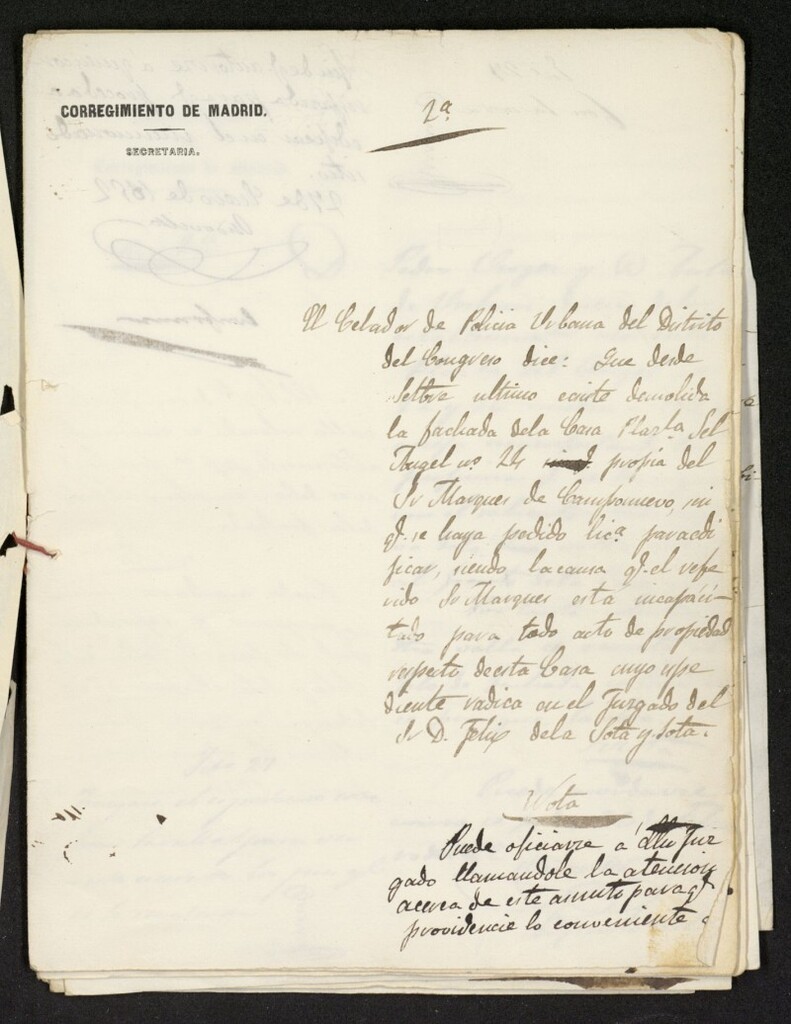 CORREGIMIENTO DE MADRID.
SECRETARIA.
2ª
El Celador de Policia Urbana del Distrito
del Congreso dice: Que desde
Setbre ultimo existe demolida
la fachada dela Casa Plazla del
Angel nº 24 propia del
Sr Marques de Camponuevo, sin
q.e se haya pedido lica paraedi
ficar, siendo lacausa q.e el refe
rido Sr Marques está incapaci-
tado para todo acto de propiedad
respecto deesta Casa cuyo espe
diente radica en el Juzgado del
Sr D. Felix dela Sota y Sota.
Nota
Puede oficiarse á dho Juz
gado llamandole la atencion
acerca de este asunto para q.e
providencie lo conveniente.